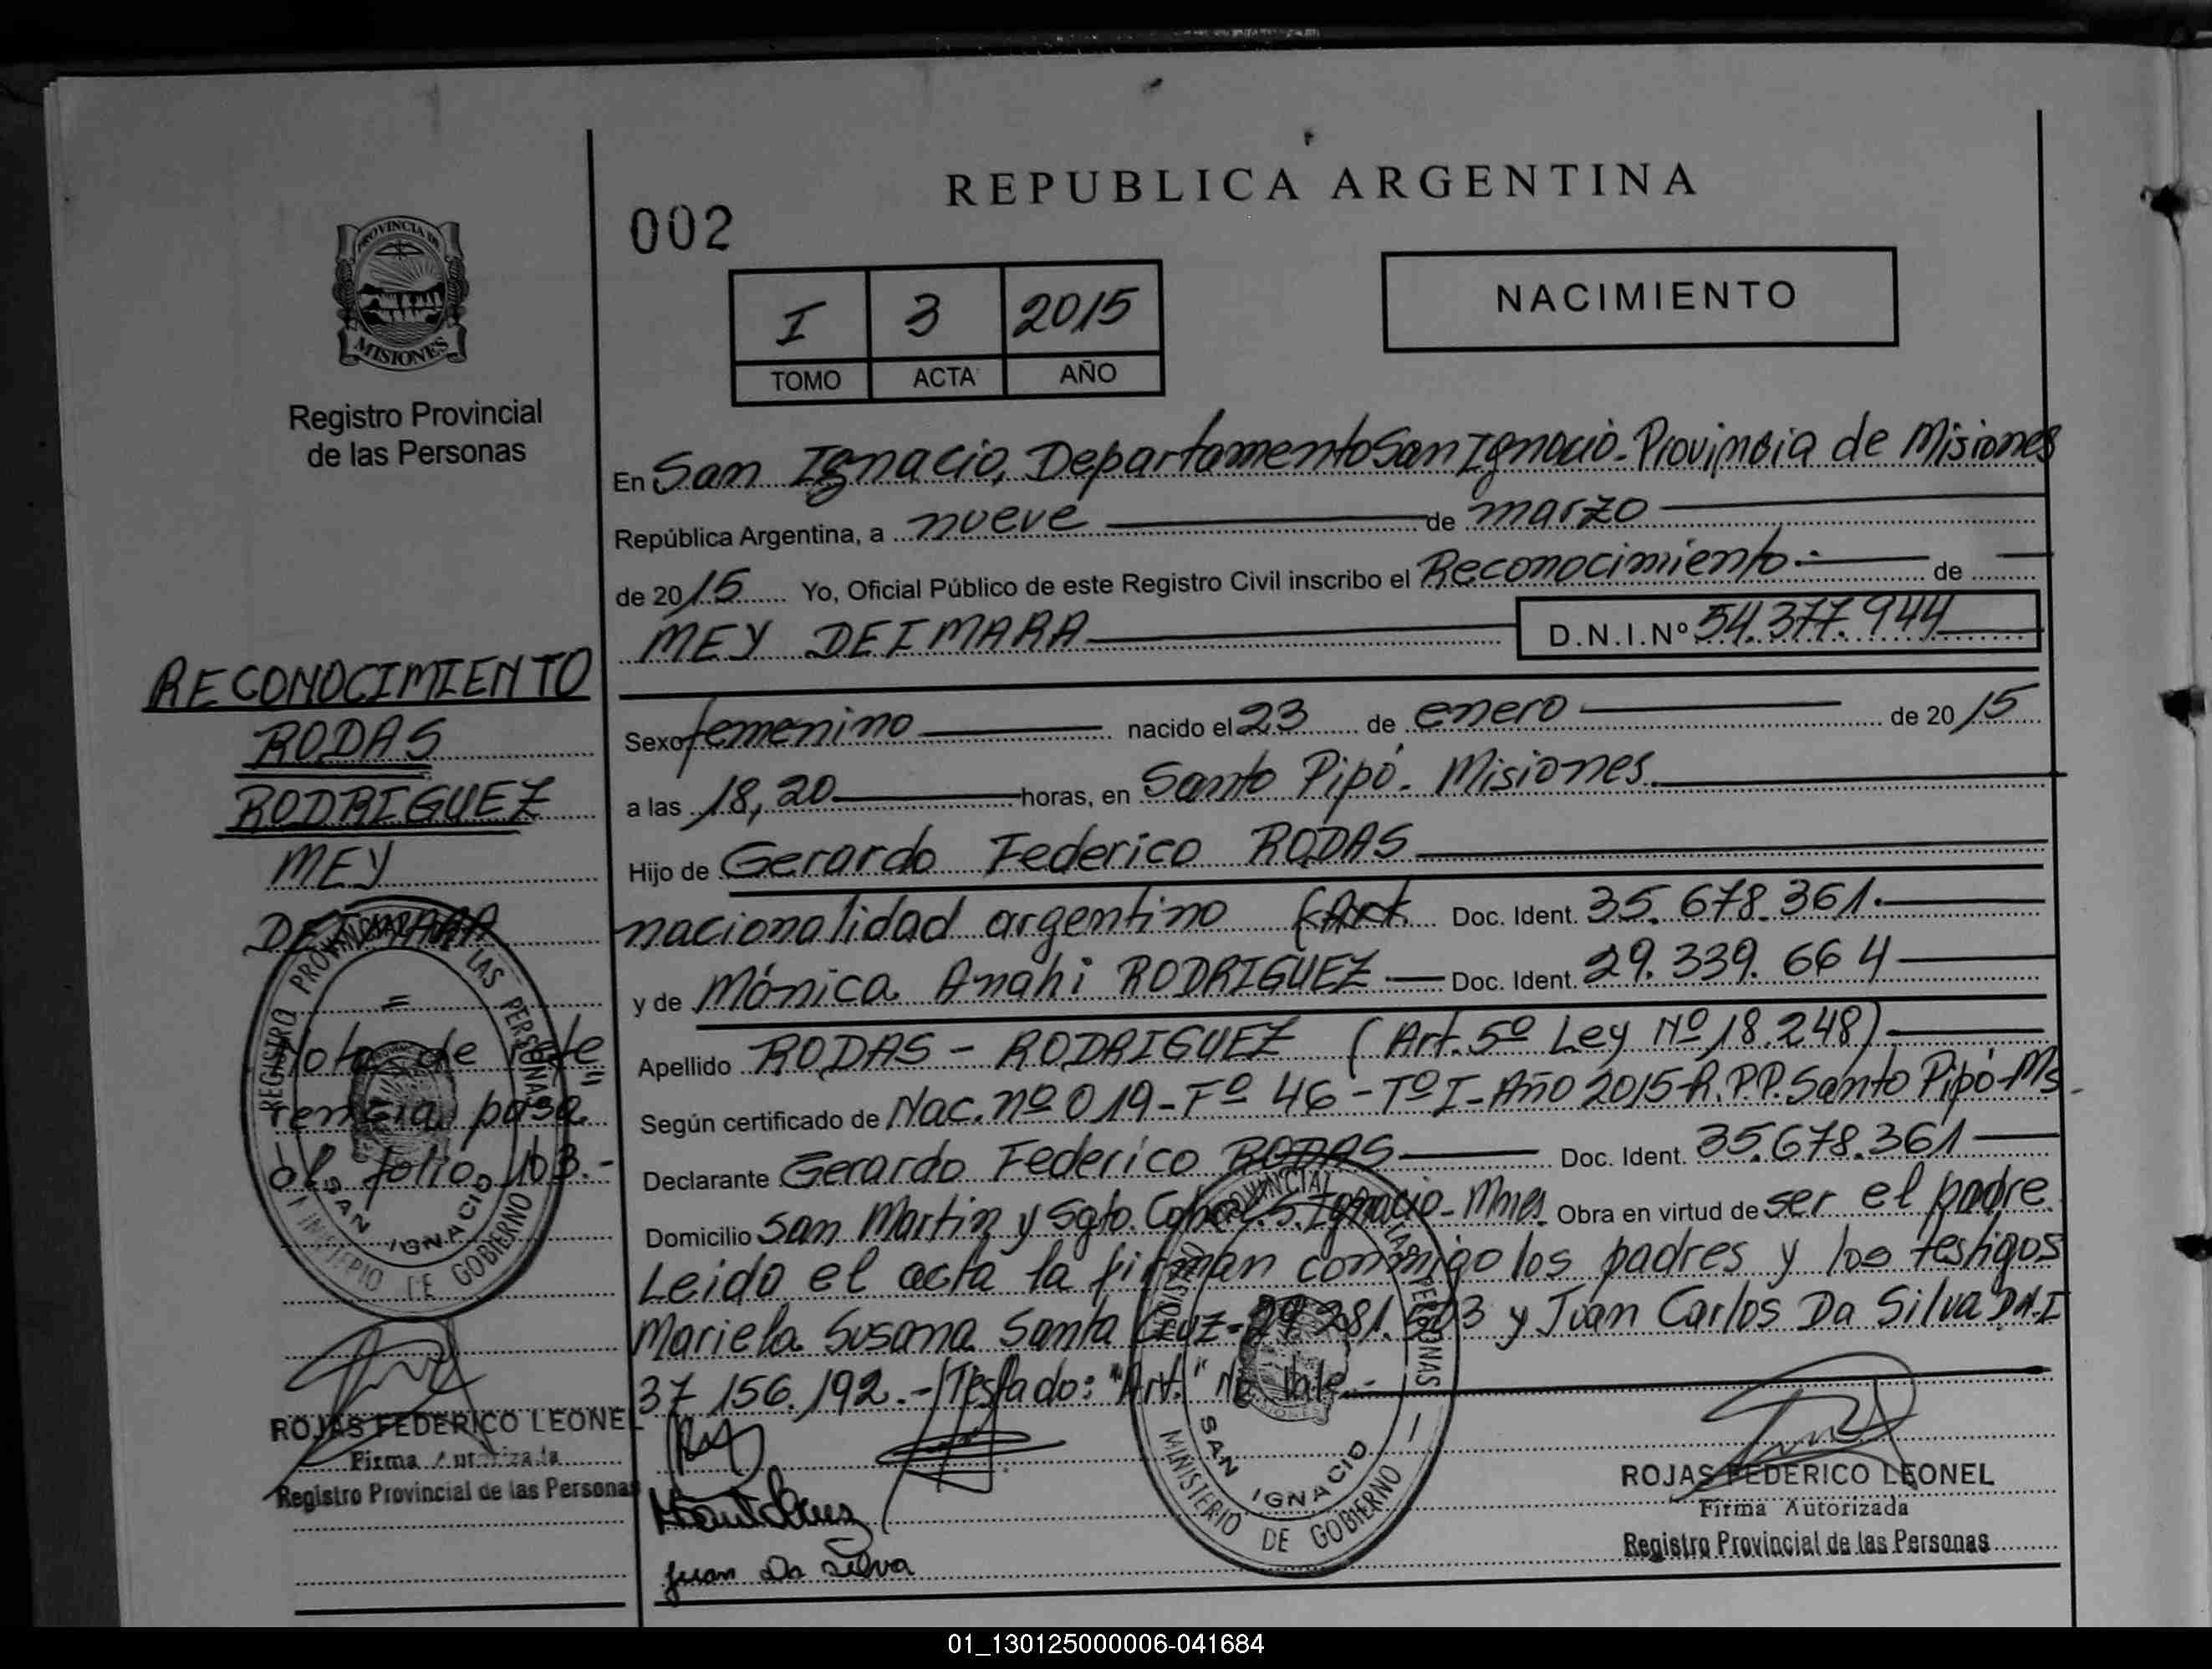 REPUBLICA ARGENTINA
002
NACIMIENTO
I 3 2015
TOMO ACTA AÑO
PROVINCIA DE
MISIONES
Registro Provincial
de las Personas
En San Ignacio, Departamento San Ignacio - Provincia de Misiones
República Argentina, a nueve de marzo
de 2015 Yo, Oficial Público de este Registro Civil inscribo el Reconocimiento.- de
MEY DEIMARA D.N.I.Nº 54.377.944
Sexo femenino nacido el 23 de enero de 2015
a las 18,20 horas, en Santo Pipó - Misiones.
Hijo de Gerardo Federico RODAS
nacionalidad argentino (Art Doc. Ident. 35.678.361.
y de Mónica Anahi RODRIGUEZ Doc. Ident. 29.339.664
Apellido RODAS - RODRIGUEZ (Art. 5º Ley Nº 18.248)
Según certificado de Nac. nº 019 - Fº 46 - Tº I - Año 2015 - R.P.P. Santo Pipó - Ms
Declarante Gerardo Federico RODAS Doc. Ident. 35.678.361
Domicilio San Martin y Sgto. Cabral. S. Ignacio - Mnes. Obra en virtud de ser el padre.
Leido el acta la firman conmigo los padres y los testigos
Mariela Susana Santa Cruz - y Juan Carlos Da Silva D.N.I
37.156.192.- / Testado: "Art." no vale.-
Juan Da Silva
ROJAS FEDERICO LEONEL
Firma Autorizada
Registro Provincial de las Personas
RECONOCIMIENTO
RODAS
RODRIGUEZ
MEY
DEIMARA
=
Nota de refe
rencia pasa
al folio 103.-
REGISTRO PROVINCIAL DE LAS PERSONAS
SAN IGNACIO
MINISTERIO DE GOBIERNO
ROJAS FEDERICO LEONEL
Firma Autorizada
Registro Provincial de las Personas
PROVINCIAL DE LAS PERSONAS
SAN IGNACIO
MINISTERIO DE GOBIERNO
01_130125000006-041684